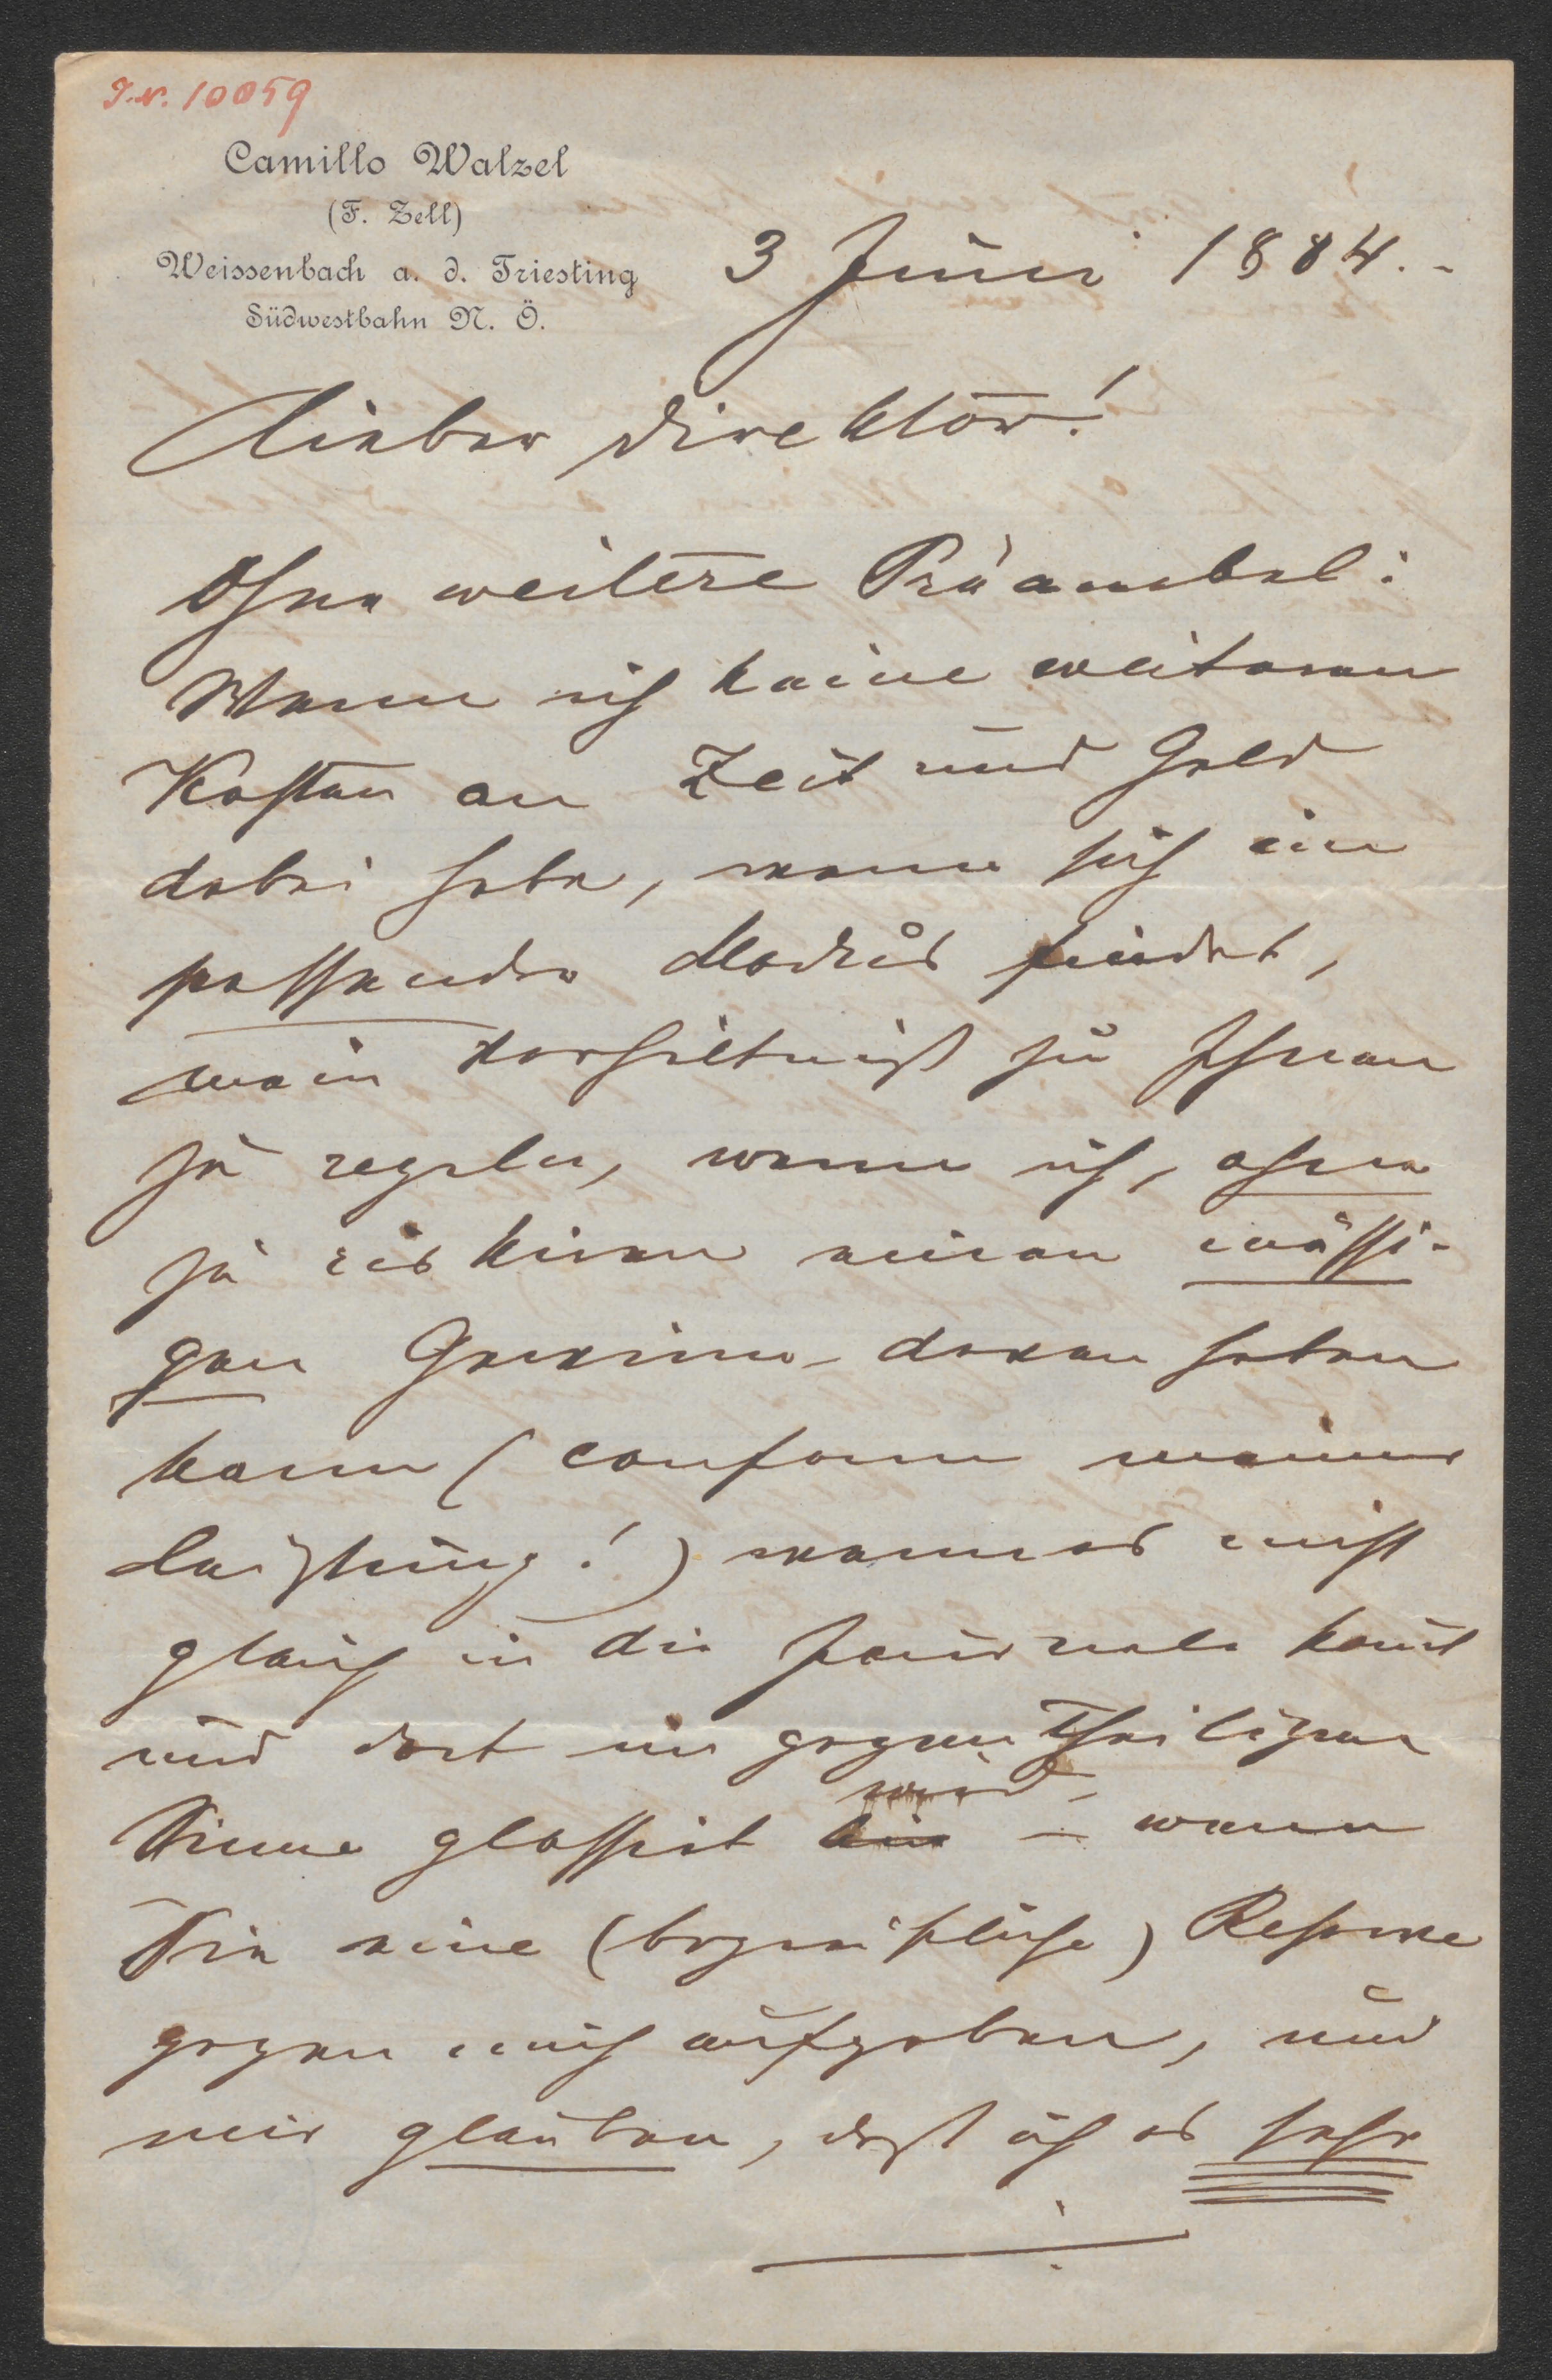 I. N. 10059
Camillo Walzel
(F. Zell)
Weissenbach a. d. Triesting
Südwestbahn N. Ö.
3 Juni 1884.-
Lieber Direktor!
Ohne weitere Präambel:
Wenn ich keine weiteren
Kosten an Zeit und Geld
dabei habe, wenn sich ein
passender Modus findet,
mein Verhältniß zu Ihnen
zu regeln, wenn ich, ohne
zu riskiren einen mässi-
gen Gewinn davon haben
kann (conform meiner
Leistung!) wenn es nicht
gleich in die Journale komt
und dort im gegentheiligen
wird -
Sinne glossirt - wenn
Sie eine (begreifliche) Reserve
gegen mich aufgeben, und
mir glauben, daß ich es sehr